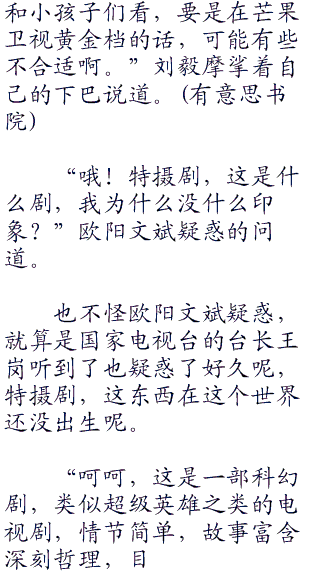 和小孩子们看，要是在芒果
卫视黄金档的话，可能有些
不合适啊。”刘毅摩挲着自
己的下巴说道。(有意思书
院)
“哦！特摄剧，这是什
么剧，我为什么没什么印
象？”欧阳文斌疑惑的问
道。
也不怪欧阳文斌疑惑，
就算是国家电视台的台长王
岗听到了也疑惑了好久呢，
特摄剧，这东西在这个世界
还没出生呢。
“呵呵，这是一部科幻
剧，类似超级英雄之类的电
视剧，情节简单，故事富含
深刻哲理，目